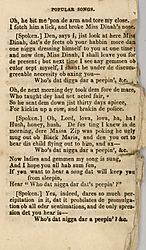 POPULAR SONGS.
Oh, he hit me 'pon de arm and tore my close,
I fotch him a lick, and broke Miss Dinah's nose.
[Spoken.] Den, says I, jist look at here Miss
Dinah, dat's de fects ob your habbin more dan
one nigga dressing himself to you at one time;
and now den, Miss Dinah, I shall leave you for
de present; but next time I see any gemmen ob
color sept myself, I shant be under de disum-
greeable necessity ob axing you—
Who's dat nigga dar a peepin', &c.
Oh, de next morning dey took dem fore de mare,
Who taught dey had not acted fair,
So he sent dem down just thirty days apiece,
For kickin up a row, and brakin de police.
[Spoken.] Oh, Lord, lova, lova, ha, ha!
Hush, honey, hush. De fus ting I knew in de
morning, dere Massa Zip was poking he ugly
mug out ob Black Maria, and den you ort to
hear dis child flying out to him, and ax—
Who's dat nigga dar a peepin', &c.
Now ladies and gemmen my song is sung,
And I hope you all hab sum fun,
If you want to hear a song dat will keep you
from sleepin,
Hear " Who dat nigga dar dat's peepin ?"
[Spoken.] Yes, indeed, dares so much per-
cipitation in it, dat it probulates de promulga-
tion ob all odor sentimations, and de only spres-
sion det you hear is—
Who's dat nigga dar a peepin'! &c.